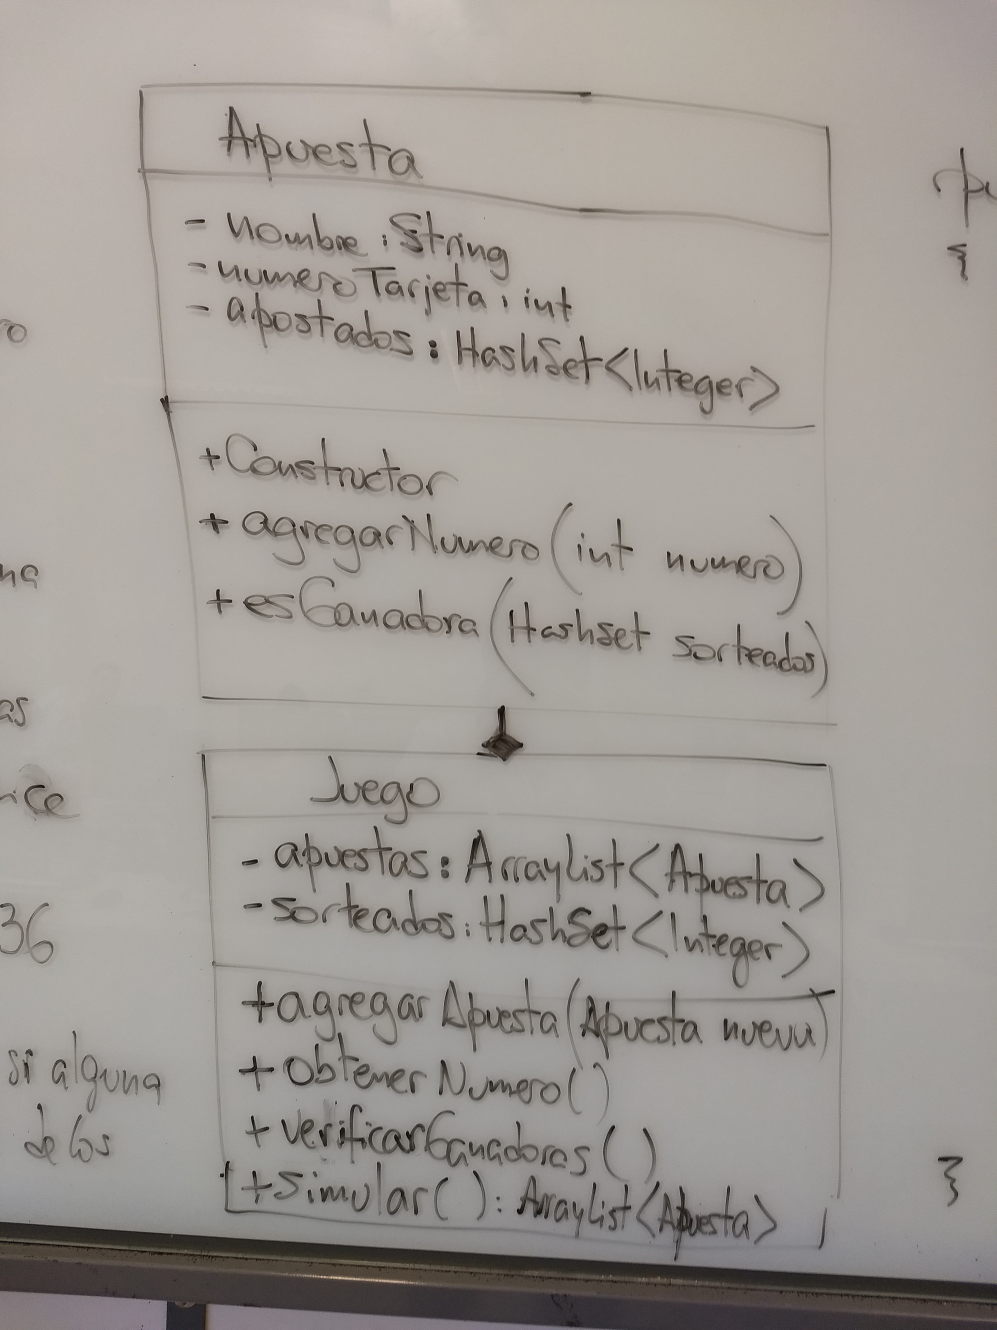 Apuesta
- nombre : String
- numeroTarjeta : int
- apostados : HashSet<Integer>
+ Constructor
+ agregarNumero (int numero)
+ esGanadora (HashSet sorteados)
Juego
- apuestas : ArrayList<Apuesta>
- sorteados : HashSet<Integer>
+ agregarApuesta (Apuesta nueva)
+ obtenerNumero()
+ verificarGanadoras()
+ simular() : ArrayList<Apuesta>
36
si alguna
de los
{
}